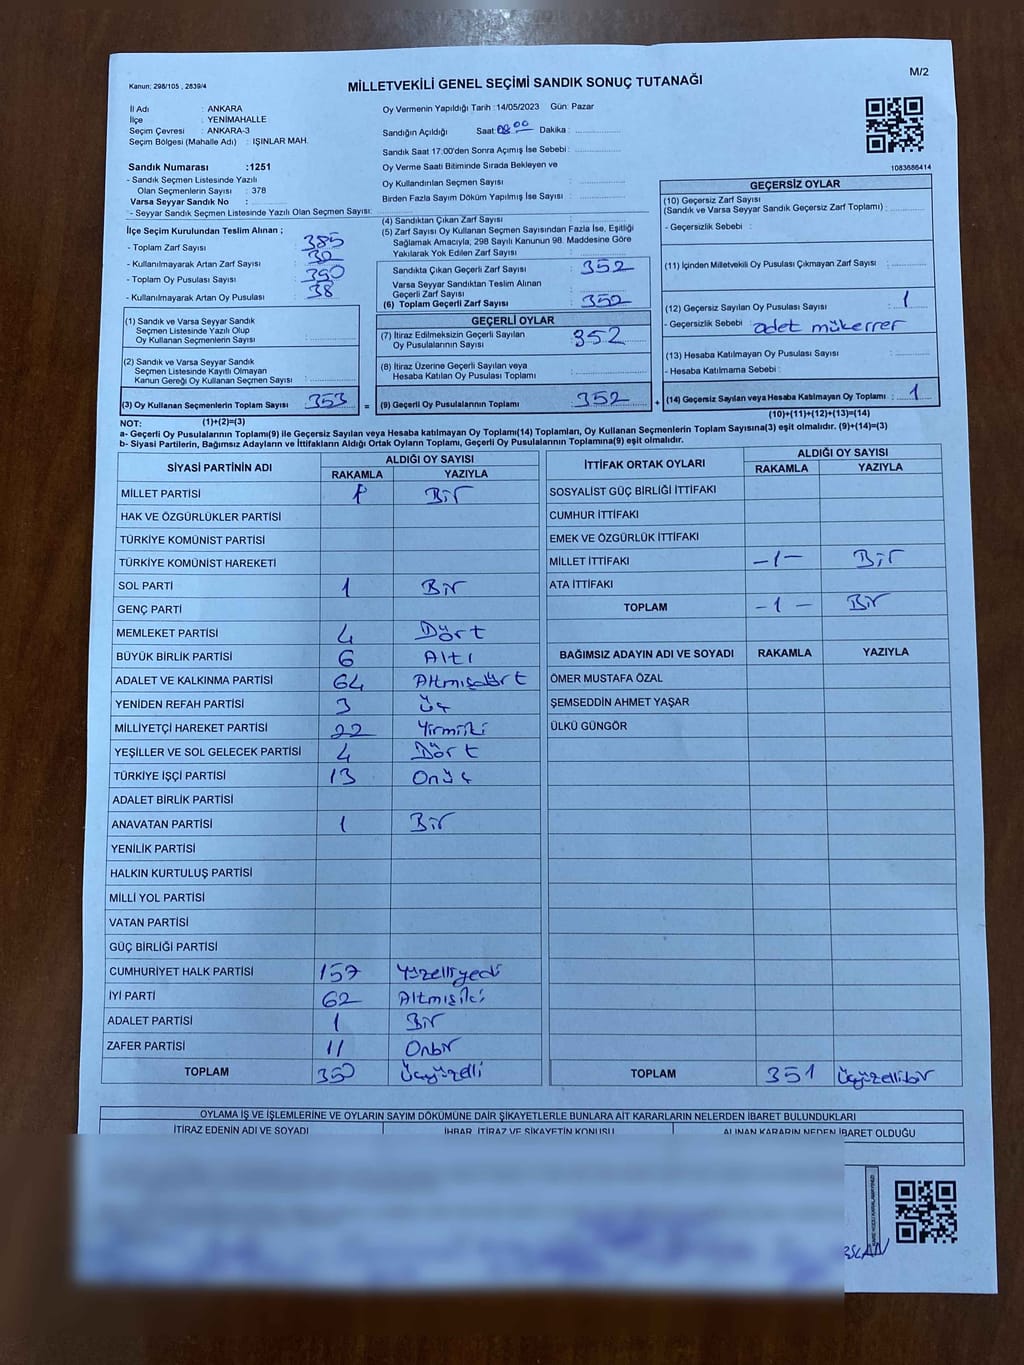 M/2
Kanun: 298/105 , 2839/4
MİLLETVEKİLİ GENEL SEÇİMİ SANDIK SONUÇ TUTANAĞI
İl Adı : ANKARA
İlçe : YENİMAHALLE
Seçim Çevresi : ANKARA-3
Seçim Bölgesi (Mahalle Adı) : IŞINLAR MAH.
Sandık Numarası :1251
- Sandık Seçmen Listesinde Yazılı
Olan Seçmenlerin Sayısı : 378
Varsa Seyyar Sandık No :
- Seyyar Sandık Seçmen Listesinde Yazılı Olan Seçmen Sayısı:
Oy Vermenin Yapıldığı Tarih :14/05/2023 Gün: Pazar
Sandığın Açıldığı Saat 08:00 Dakika :
Sandık Saat 17:00'den Sonra Açımış İse Sebebi :
Oy Verme Saati Bitiminde Sırada Bekleyen ve
Oy Kullandırılan Seçmen Sayısı :
Birden Fazla Sayım Döküm Yapılmış İse Sayısı :
1083686414
İlçe Seçim Kurulundan Teslim Alınan ;
- Toplam Zarf Sayısı : 385
- Kullanılmayarak Artan Zarf Sayısı : 32
- Toplam Oy Pusulası Sayısı : 390
- Kullanılmayarak Artan Oy Pusulası : 38
(1) Sandık ve Varsa Seyyar Sandık
Seçmen Listesinde Yazılı Olup
Oy Kullanan Seçmenlerin Sayısı :
(2) Sandık ve Varsa Seyyar Sandık
Seçmen Listesinde Kayıtlı Olmayan
Kanun Gereği Oy Kullanan Seçmen Sayısı :
(3) Oy Kullanan Seçmenlerin Toplam Sayısı : 353 =
(1)+(2)=(3)
(4) Sandıktan Çıkan Zarf Sayısı :
(5) Zarf Sayısı Oy Kullanan Seçmen Sayısından Fazla İse, Eşitliği
Sağlamak Amacıyla, 298 Sayılı Kanunun 98. Maddesine Göre
Yakılarak Yok Edilen Zarf Sayısı :
Sandıkta Çıkan Geçerli Zarf Sayısı : 352
Varsa Seyyar Sandıktan Teslim Alınan
Geçerli Zarf Sayısı :
(6) Toplam Geçerli Zarf Sayısı : 352
GEÇERLİ OYLAR
(7) İtiraz Edilmeksizin Geçerli Sayılan
Oy Pusulalarının Sayısı : 352
(8) İtiraz Üzerine Geçerli Sayılan veya
Hesaba Katılan Oy Pusulası Toplamı :
(9) Geçerli Oy Pusulalarının Toplamı : 352 +
GEÇERSİZ OYLAR
(10) Geçersiz Zarf Sayısı
(Sandık ve Varsa Seyyar Sandık Geçersiz Zarf Toplamı) :
- Geçersizlik Sebebi :
(11) İçinden Milletvekili Oy Pusulası Çıkmayan Zarf Sayısı :
(12) Geçersiz Sayılan Oy Pusulası Sayısı : 1
- Geçersizlik Sebebi : adet mükerrer
(13) Hesaba Katılmayan Oy Pusulası Sayısı :
- Hesaba Katılmama Sebebi :
(14) Geçersiz Sayılan veya Hesaba Katılmayan Oy Toplamı : 1
(10)+(11)+(12)+(13)=(14)
NOT:
a- Geçerli Oy Pusulalarının Toplamı(9) ile Geçersiz Sayılan veya Hesaba katılmayan Oy Toplamı(14) Toplamları, Oy Kullanan Seçmenlerin Toplam Sayısına(3) eşit olmalıdır. (9)+(14)=(3)
b- Siyasi Partilerin, Bağımsız Adayların ve İttifakların Aldığı Ortak Oyların Toplamı, Geçerli Oy Pusulalarının Toplamına(9) eşit olmalıdır.
SİYASİ PARTİNİN ADI ALDIĞI OY SAYISI
RAKAMLA YAZIYLA
MİLLET PARTİSİ 1 Bir
HAK VE ÖZGÜRLÜKLER PARTİSİ
TÜRKİYE KOMÜNİST PARTİSİ
TÜRKİYE KOMÜNİST HAREKETİ
SOL PARTİ 1 Bir
GENÇ PARTİ
MEMLEKET PARTİSİ 4 Dört
BÜYÜK BİRLİK PARTİSİ 6 Altı
ADALET VE KALKINMA PARTİSİ 64 Altmışdört
YENİDEN REFAH PARTİSİ 3 Üç
MİLLİYETÇİ HAREKET PARTİSİ 22 Yirmiiki
YEŞİLLER VE SOL GELECEK PARTİSİ 4 Dört
TÜRKİYE İŞÇİ PARTİSİ 13 Onüç
ADALET BİRLİK PARTİSİ
ANAVATAN PARTİSİ 1 Bir
YENİLİK PARTİSİ
HALKIN KURTULUŞ PARTİSİ
MİLLİ YOL PARTİSİ
VATAN PARTİSİ
GÜÇ BİRLİĞİ PARTİSİ
CUMHURİYET HALK PARTİSİ 157 Yüzelliyedi
İYİ PARTİ 62 Altmışiki
ADALET PARTİSİ 1 Bir
ZAFER PARTİSİ 11 Onbir
TOPLAM 350 Üçyüzelli
İTTİFAK ORTAK OYLARI ALDIĞI OY SAYISI
RAKAMLA YAZIYLA
SOSYALİST GÜÇ BİRLİĞİ İTTİFAKI
CUMHUR İTTİFAKI
EMEK VE ÖZGÜRLÜK İTTİFAKI
MİLLET İTTİFAKI -1- Bir
ATA İTTİFAKI
TOPLAM -1- Bir
BAĞIMSIZ ADAYIN ADI VE SOYADI RAKAMLA YAZIYLA
ÖMER MUSTAFA ÖZAL
ŞEMSEDDİN AHMET YAŞAR
ÜLKÜ GÜNGÖR
TOPLAM 351 Üçyüzellibir
OYLAMA İŞ VE İŞLEMLERİNE VE OYLARIN SAYIM DÖKÜMÜNE DAİR ŞİKAYETLERLE BUNLARA AİT KARARLARIN NELERDEN İBARET BULUNDUKLARI
İTİRAZ EDENİN ADI VE SOYADI İHBAR, İTİRAZ VE ŞİKAYETİN KONUSU ALINAN KARARIN NEDEN İBARET OLDUĞU